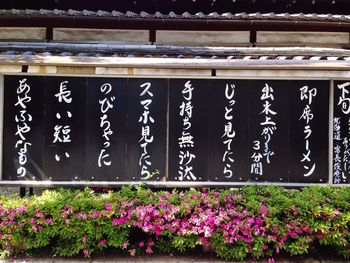 即席ラーメン
出来上がり3分
じっと見てたら
手持ち無沙汰
スマホ見てたら
のびちゃった
長い短い
あやふやなもの